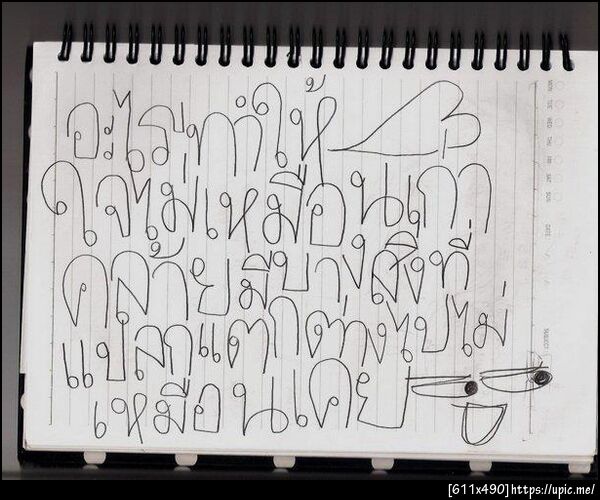 อะไรทำให้
ใจไม่เหมือนเกา
คล้ายมีบางสิ่งที่
แปลกแตกต่างไปไม่
เหมือนเคย
MON TUE WED THU FRI SAT SUN
DATE
SUBJECT
[611x490]https://upic.me/